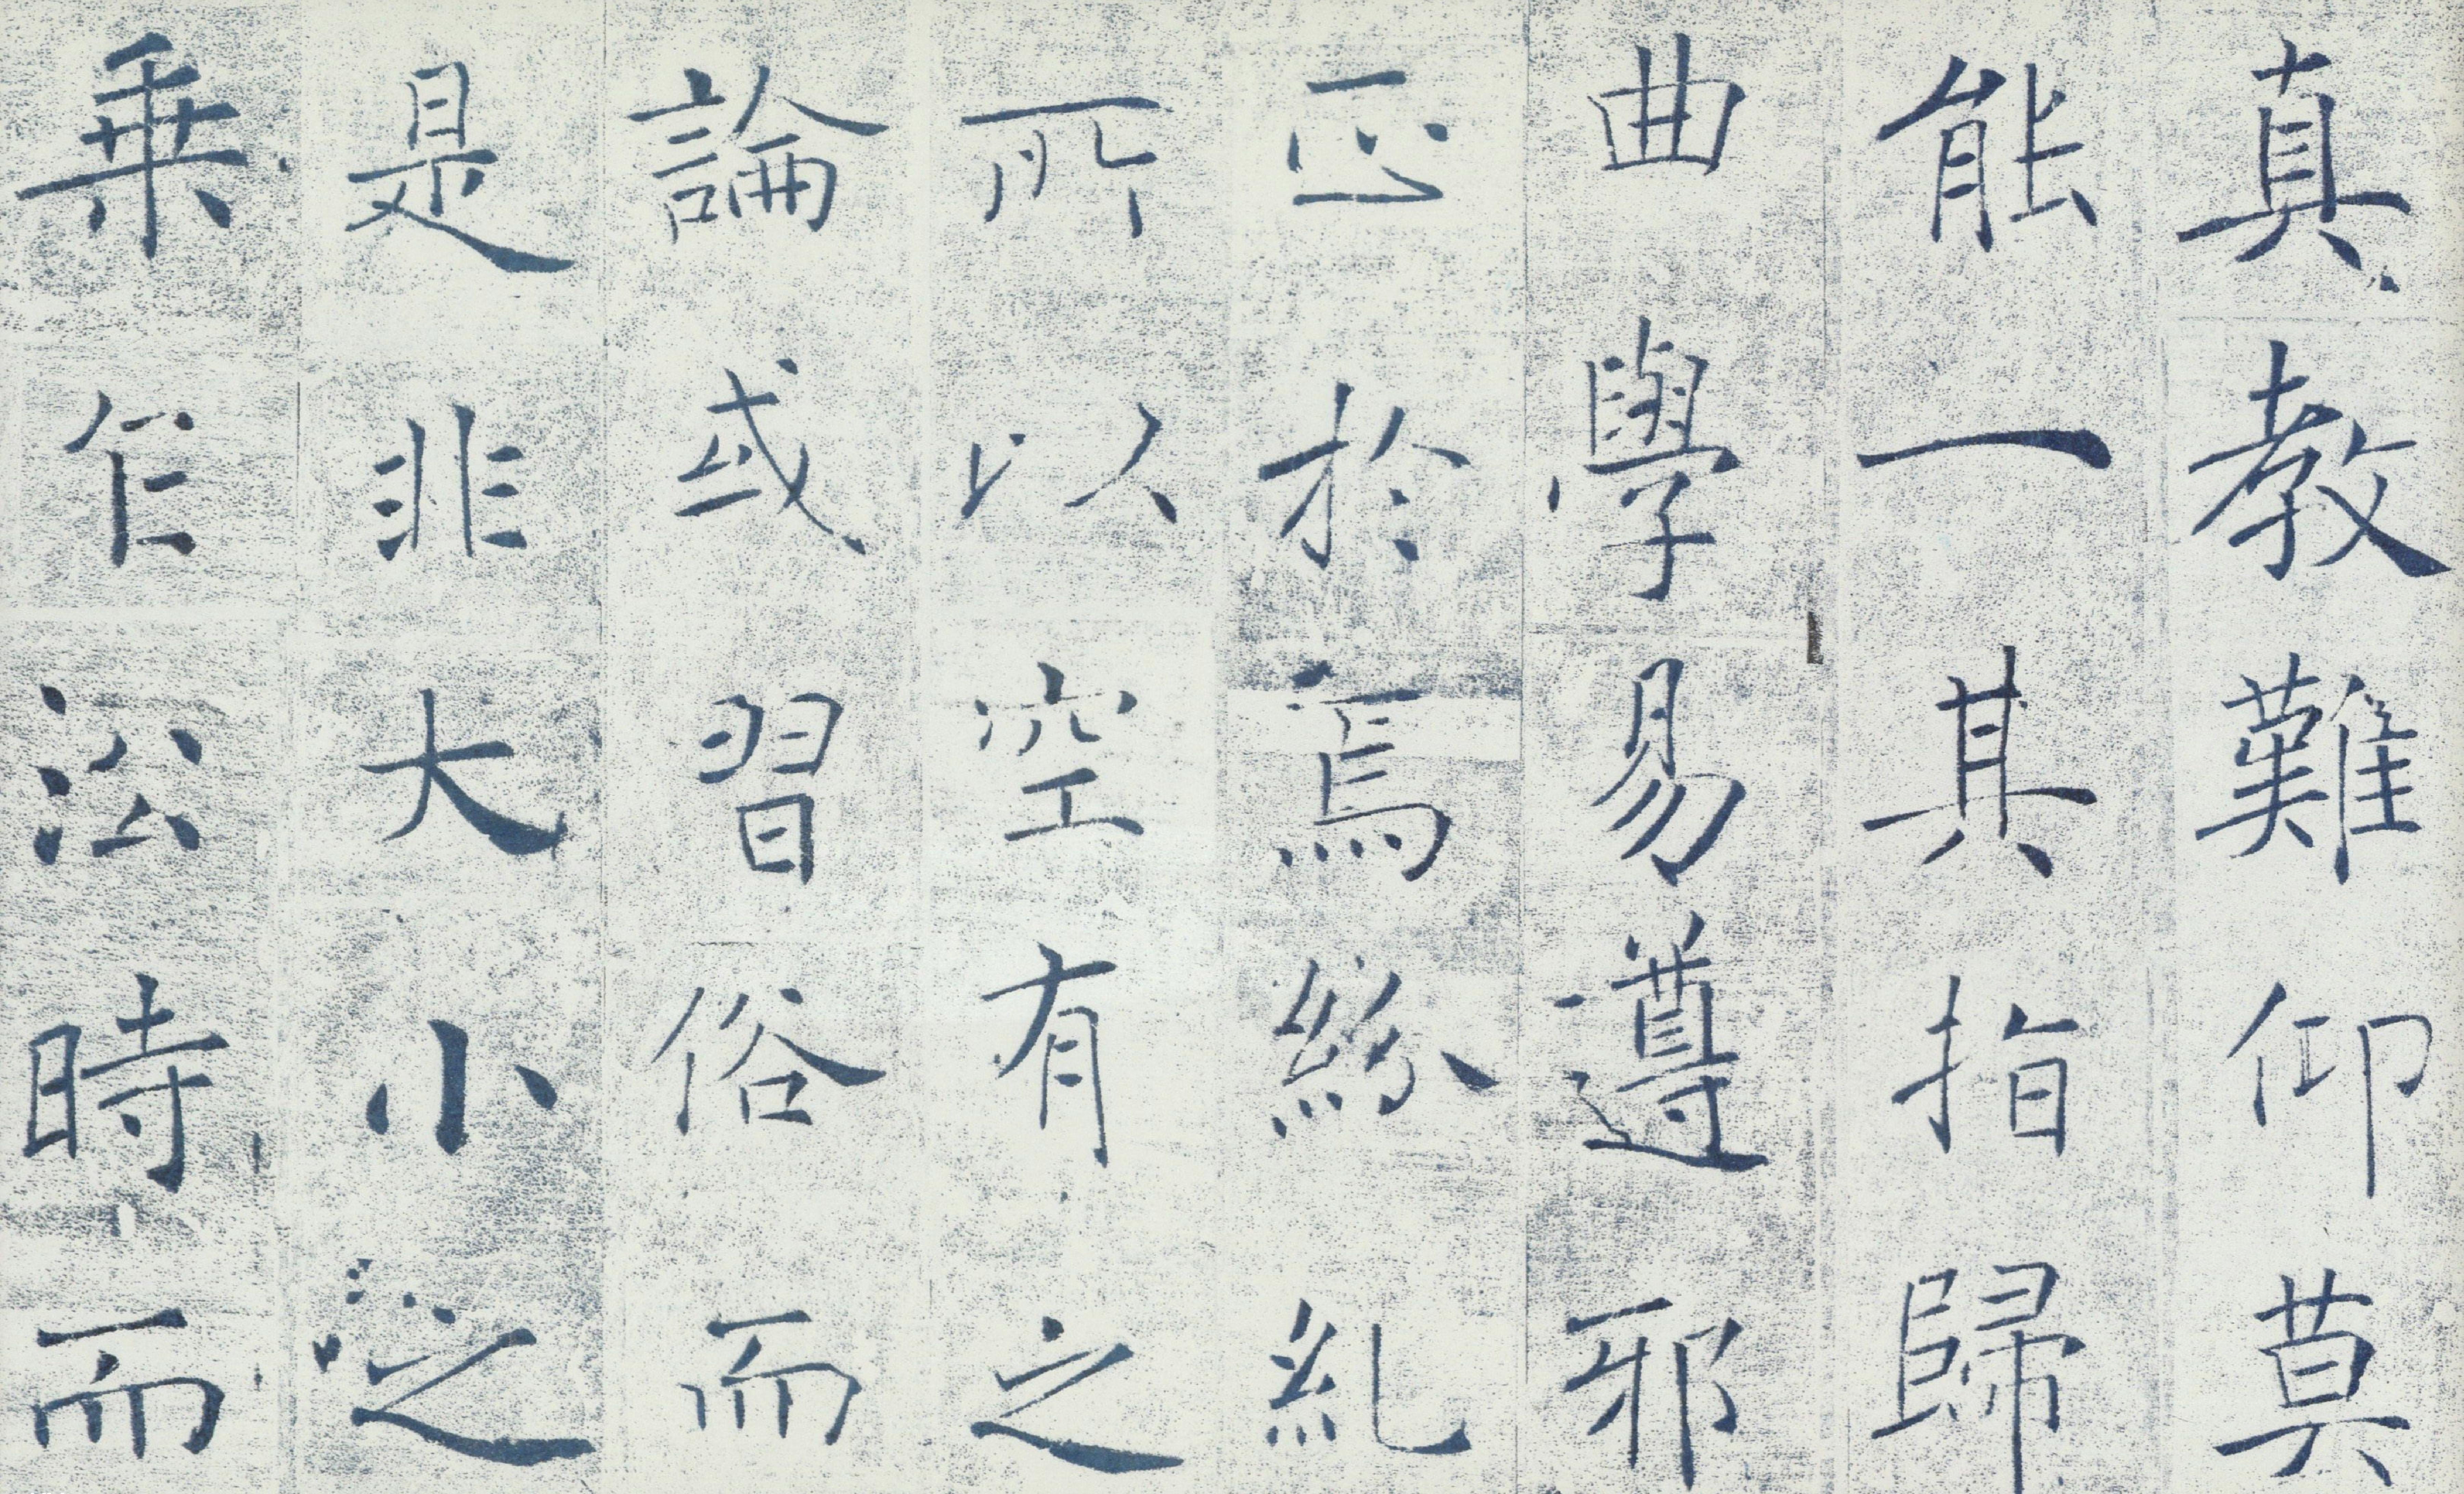 真教難仰莫
能一其指歸
曲學易遵邪
正於焉紛糺
所以空有之
論或習俗而
是非大小之
乗乍㳂時而